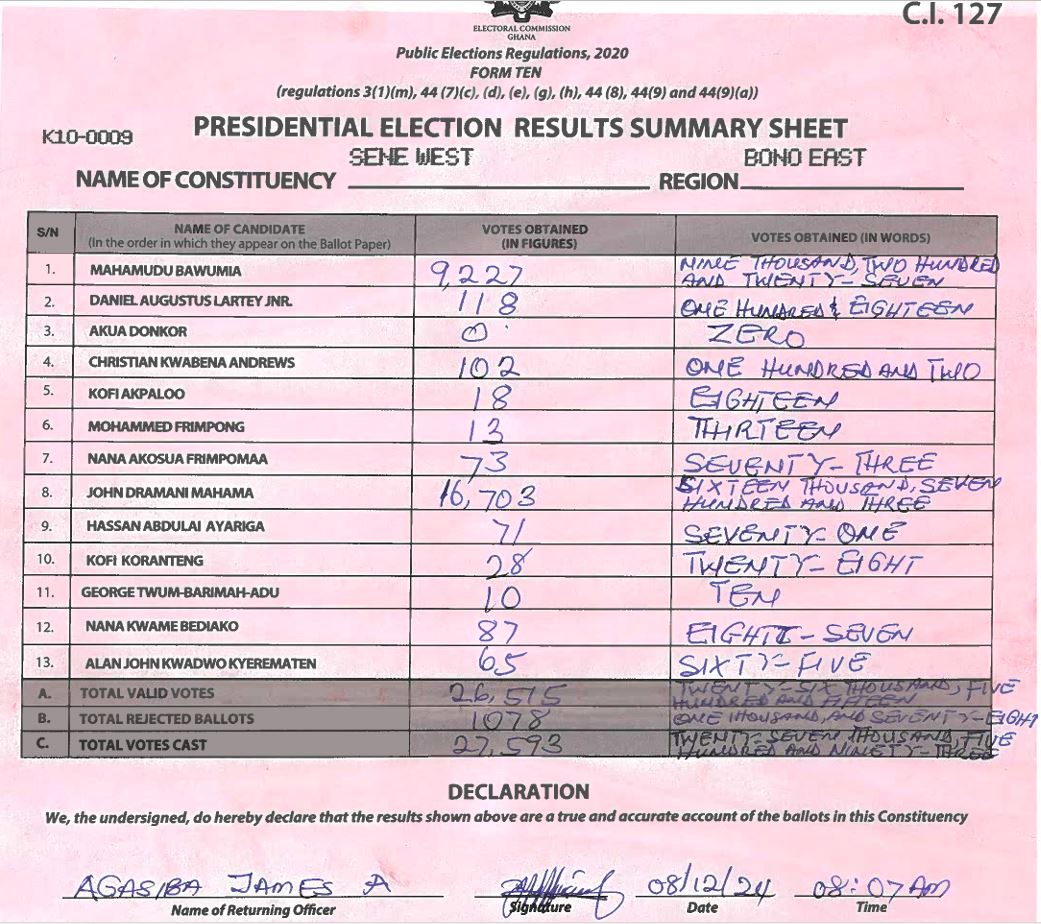 C.I. 127
ELECTORAL COMMISSION
GHANA
Public Elections Regulations, 2020
FORM TEN
(regulations 3(1)(m), 44 (7)(c), (d), (e), (g), (h), 44 (8), 44(9) and 44(9)(a))
K10-0009
PRESIDENTIAL ELECTION RESULTS SUMMARY SHEET
SENE WEST BONO EAST
NAME OF CONSTITUENCY REGION
S/N NAME OF CANDIDATE (In the order in which they appear on the Ballot Paper) VOTES OBTAINED (IN FIGURES) VOTES OBTAINED (IN WORDS)
1. MAHAMUDU BAWUMIA 9,227 NINE THOUSAND, TWO HUNDRED AND TWENTY-SEVEN
2. DANIEL AUGUSTUS LARTEY JNR. 118 ONE HUNDRED & EIGHTEEN
3. AKUA DONKOR 0 ZERO
4. CHRISTIAN KWABENA ANDREWS 102 ONE HUNDRED AND TWO
5. KOFI AKPALOO 18 EIGHTEEN
6. MOHAMMED FRIMPONG 13 THIRTEEN
7. NANA AKOSUA FRIMPOMAA 73 SEVENTY-THREE
8. JOHN DRAMANI MAHAMA 16,703 SIXTEEN THOUSAND, SEVEN HUNDRED AND THREE
9. HASSAN ABDULAI AYARIGA 71 SEVENTY-ONE
10. KOFI KORANTENG 28 TWENTY-EIGHT
11. GEORGE TWUM-BARIMAH-ADU 10 TEN
12. NANA KWAME BEDIAKO 87 EIGHTY-SEVEN
13. ALAN JOHN KWADWO KYEREMATEN 65 SIXTY-FIVE
A. TOTAL VALID VOTES 26,515 TWENTY-SIX THOUSAND, FIVE HUNDRED AND FIFTEEN
B. TOTAL REJECTED BALLOTS 1078 ONE THOUSAND, AND SEVENTY-EIGHT
C. TOTAL VOTES CAST 27,593 TWENTY-SEVEN THOUSAND, FIVE HUNDRED AND NINETY-THREE
DECLARATION
We, the undersigned, do hereby declare that the results shown above are a true and accurate account of the ballots in this Constituency
AGASIBA JAMES A 08/12/24 08:07AM
Name of Returning Officer Signature Date Time